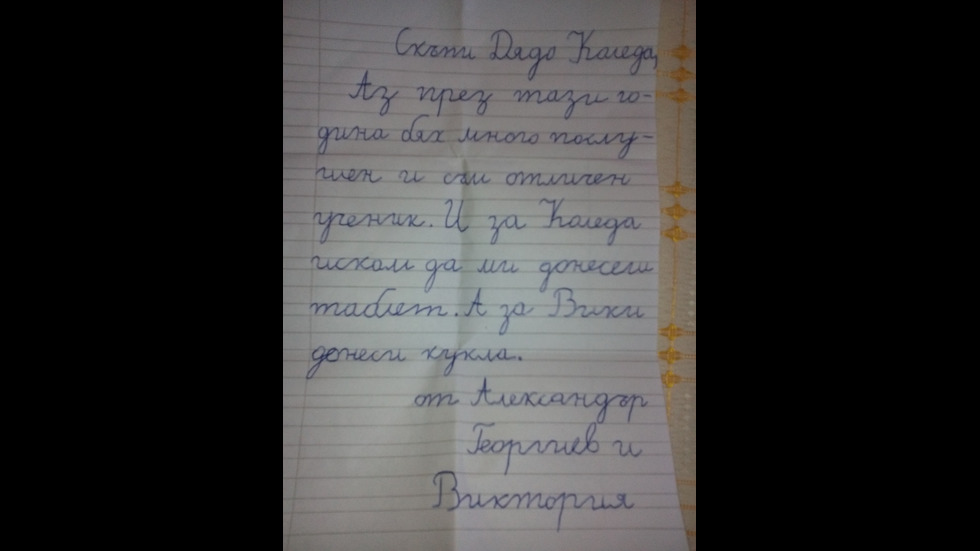 Скъпи Дядо Коледа,
Аз през тази го-
дина бях много послу-
шен и съм отличен
ученик. И за Коледа
искам да ми донесеш
таблет. А за Вики
донеси кукла.
от Александър
Георгиев и
Виктория